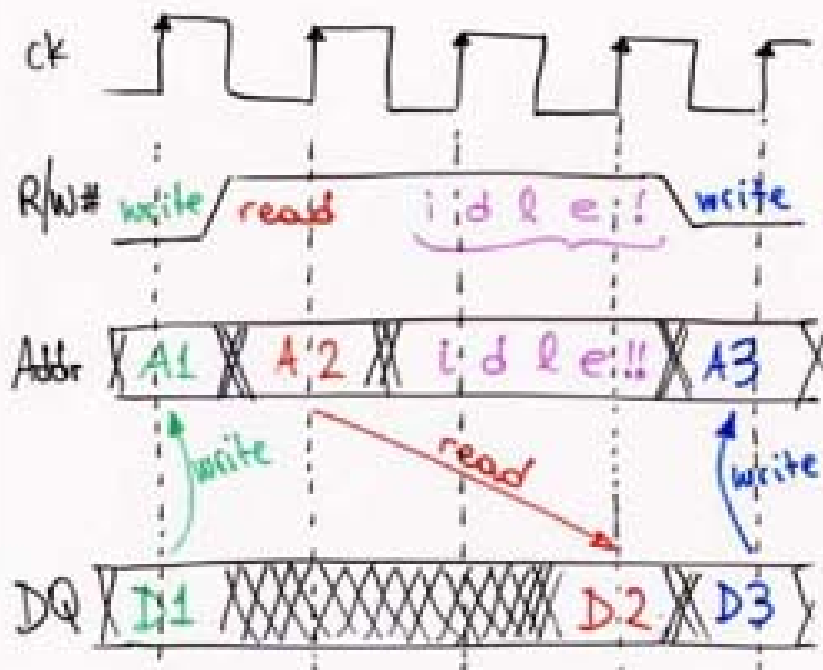 ck
R/W# write read idle! write
Addr A1 A2 idle!! A3
write read write
DQ D1 D2 D3